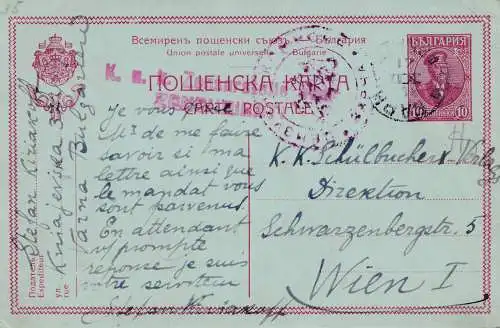 Всемиренъ пощенски съюзъ. България
Union postale universelle. Bulgarie
ПОЩЕНСКА КАРТА
CARTE POSTALE
БЪЛГАРИЯ
10 10
K. u. k.
Je vous prie
Mr de me faire
savoir si ma
lettre ainsi que
le mandat vous
sont parvenus
En attendant
v/prompte
reponse je suis
votre serviteur
Stefan Kiriakoff
K. K. Schülbucher Verlag
Direktion
Schwarzenbergstr. 5
Wien I
Stefan Kiriakoff
Kniajevska
Varna Bulgarie
Подател
Expediteur
ул.
rue